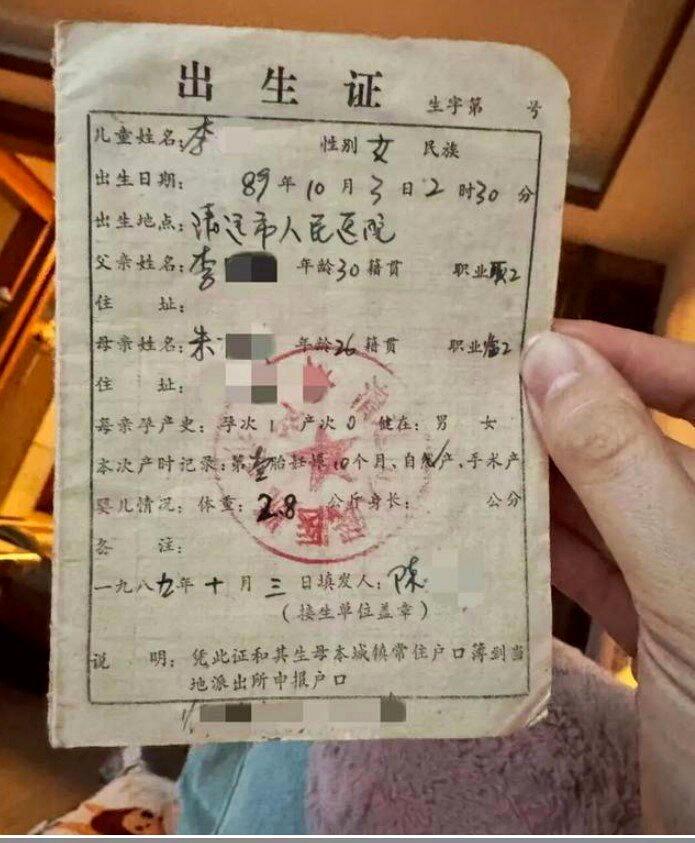 出生证
生字第 号
儿童姓名：李 性别 女 民族
出生日期： 89年10月3日2时30分
出生地点：清远市人民医院
父亲姓名：李 年龄30籍贯 职业
住 址：
母亲姓名：朱 年龄26籍贯 职业
住 址：
母亲孕产史：孕次1 产次0 健在：男 女
本次产时记录：第壹胎妊娠10个月、自然产、手术产
婴儿情况：体重：2.8 公斤身长： 公分
备 注：
一九八九年十月三日填发人：陈
（接生单位盖章）
说 明：凭此证和其生母本城镇常住户口簿到当
地派出所申报户口